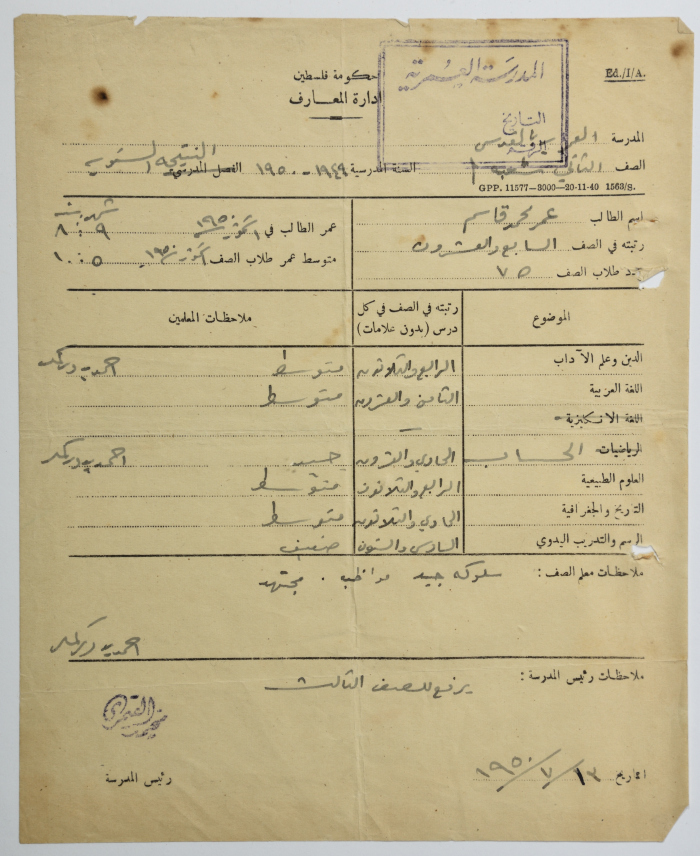 حكومة فلسطين
Ed./I/A.
ادارة المعارف
المدرسة العمرية
التاريخ
المدرسة
الصف الثاني شعبة ١ السنة المدرسية ١٩٤٩ - ١٩٥٠ الفصل المدرسي النتيجة السنوية
GPP. 11577—3000—20-11-40 1563/S.
اسم الطالب عمر محمد قاسم
عمر الطالب في ١ اكتوبر ١٩٥٠ ٩ : ٨
رتبته في الصف السابع والعشرون
متوسط عمر طلاب الصف ١ اكتوبر ١٩٥٠ ٥ : ١٠
عدد طلاب الصف ٧٥
الموضوع
رتبته في الصف في كل درس (بدون علامات)
ملاحظات المعلمين
الدين وعلم الآداب الرابع والثلاثون متوسط
اللغة العربية الثامن والعشرون متوسط
اللغة الانكليزية —
الرياضيات الحساب الحادي والعشرون جيد
العلوم الطبيعية الرابع والثلاثون متوسط
التاريخ والجغرافية الحادي والثلاثون متوسط
الرسم والتدريب اليدوي السادس والستون ضعيف
ملاحظات معلم الصف : سلوكه جيد مواظب . مجتهد
ملاحظات رئيس المدرسة :
يرفع للصف الثالث
التاريخ ١٣/٧/١٩٥٠
رئيس المدرسة